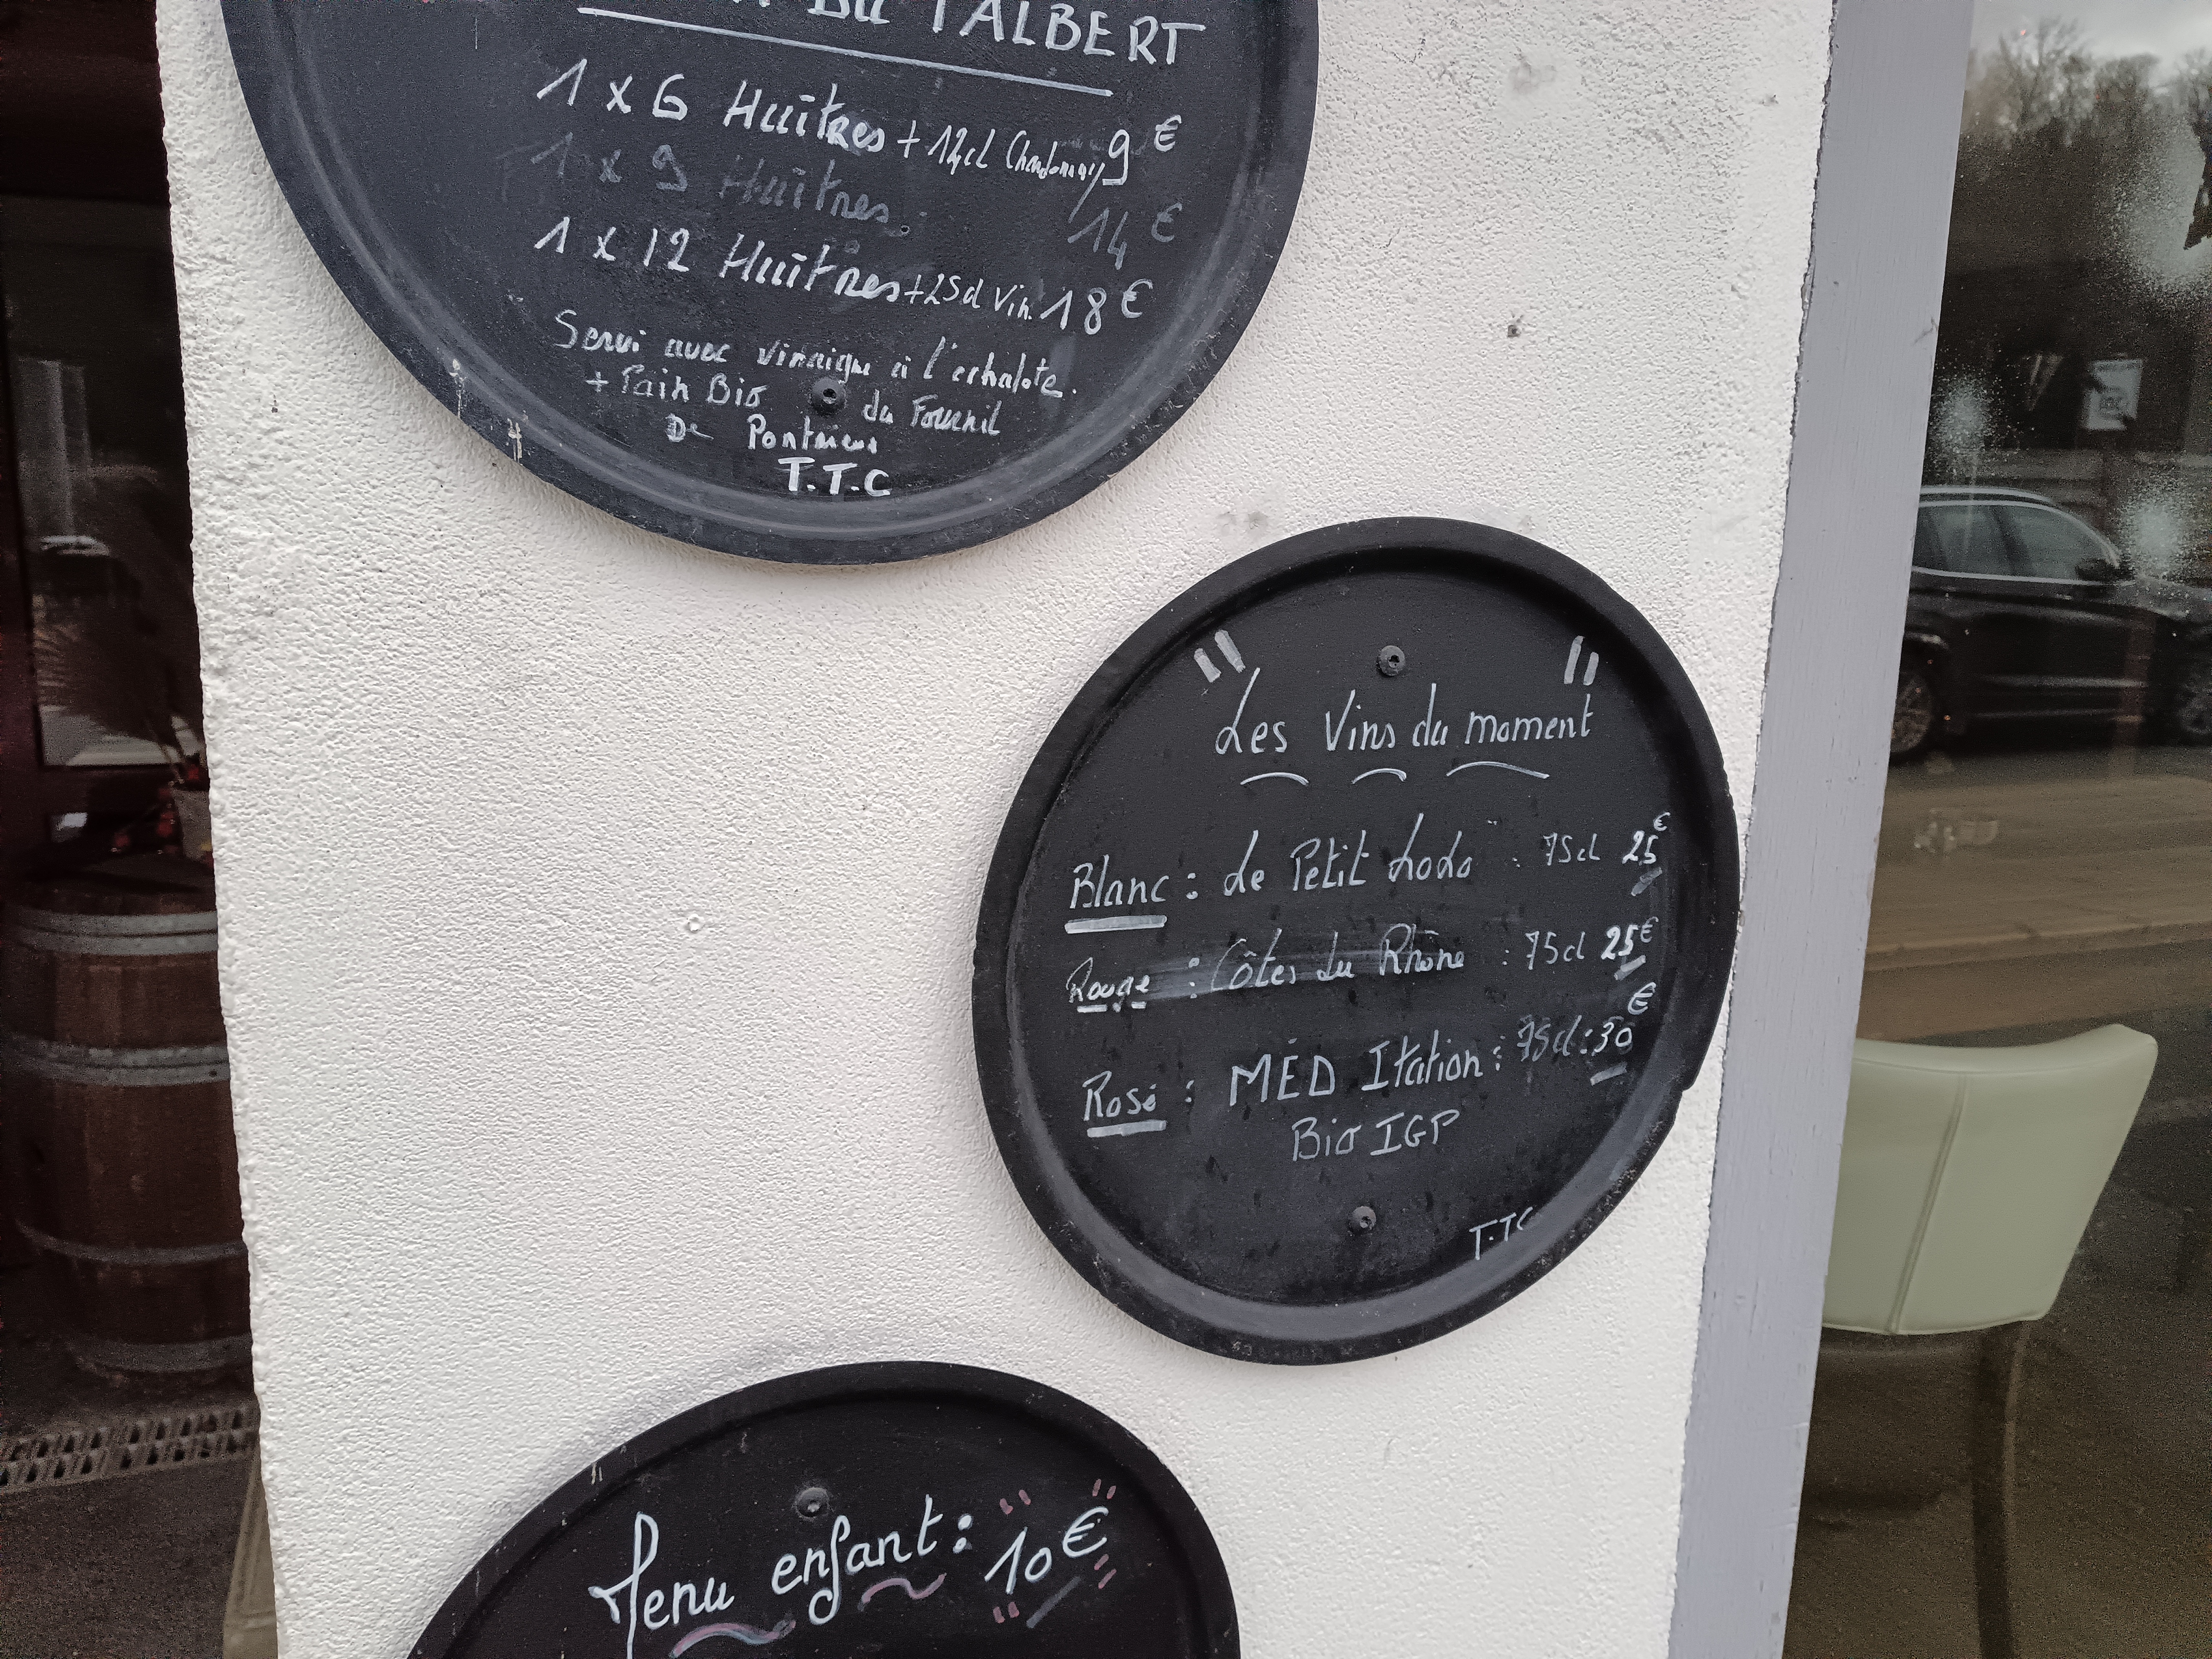 Du TALBERT
1 x 6 Huîtres + 12cl Chardonnay 9€
1 x 9 Huîtres : 14€
1 x 12 Huîtres + 25cl Vin. 18€
Servi avec vinaigre à l'echalote.
+ Pain Bio du Fournil
De Pontrieux
T.T.C
" "
Les Vins du moment
Blanc : Le Petit LoLo : 75cl 25€
Rouge : Côtes du Rhône : 75cl 25€
Rosé : MÉD Itation : 75cl : 30€
Bio IGP
T.TC
Menu enfant : "10€"